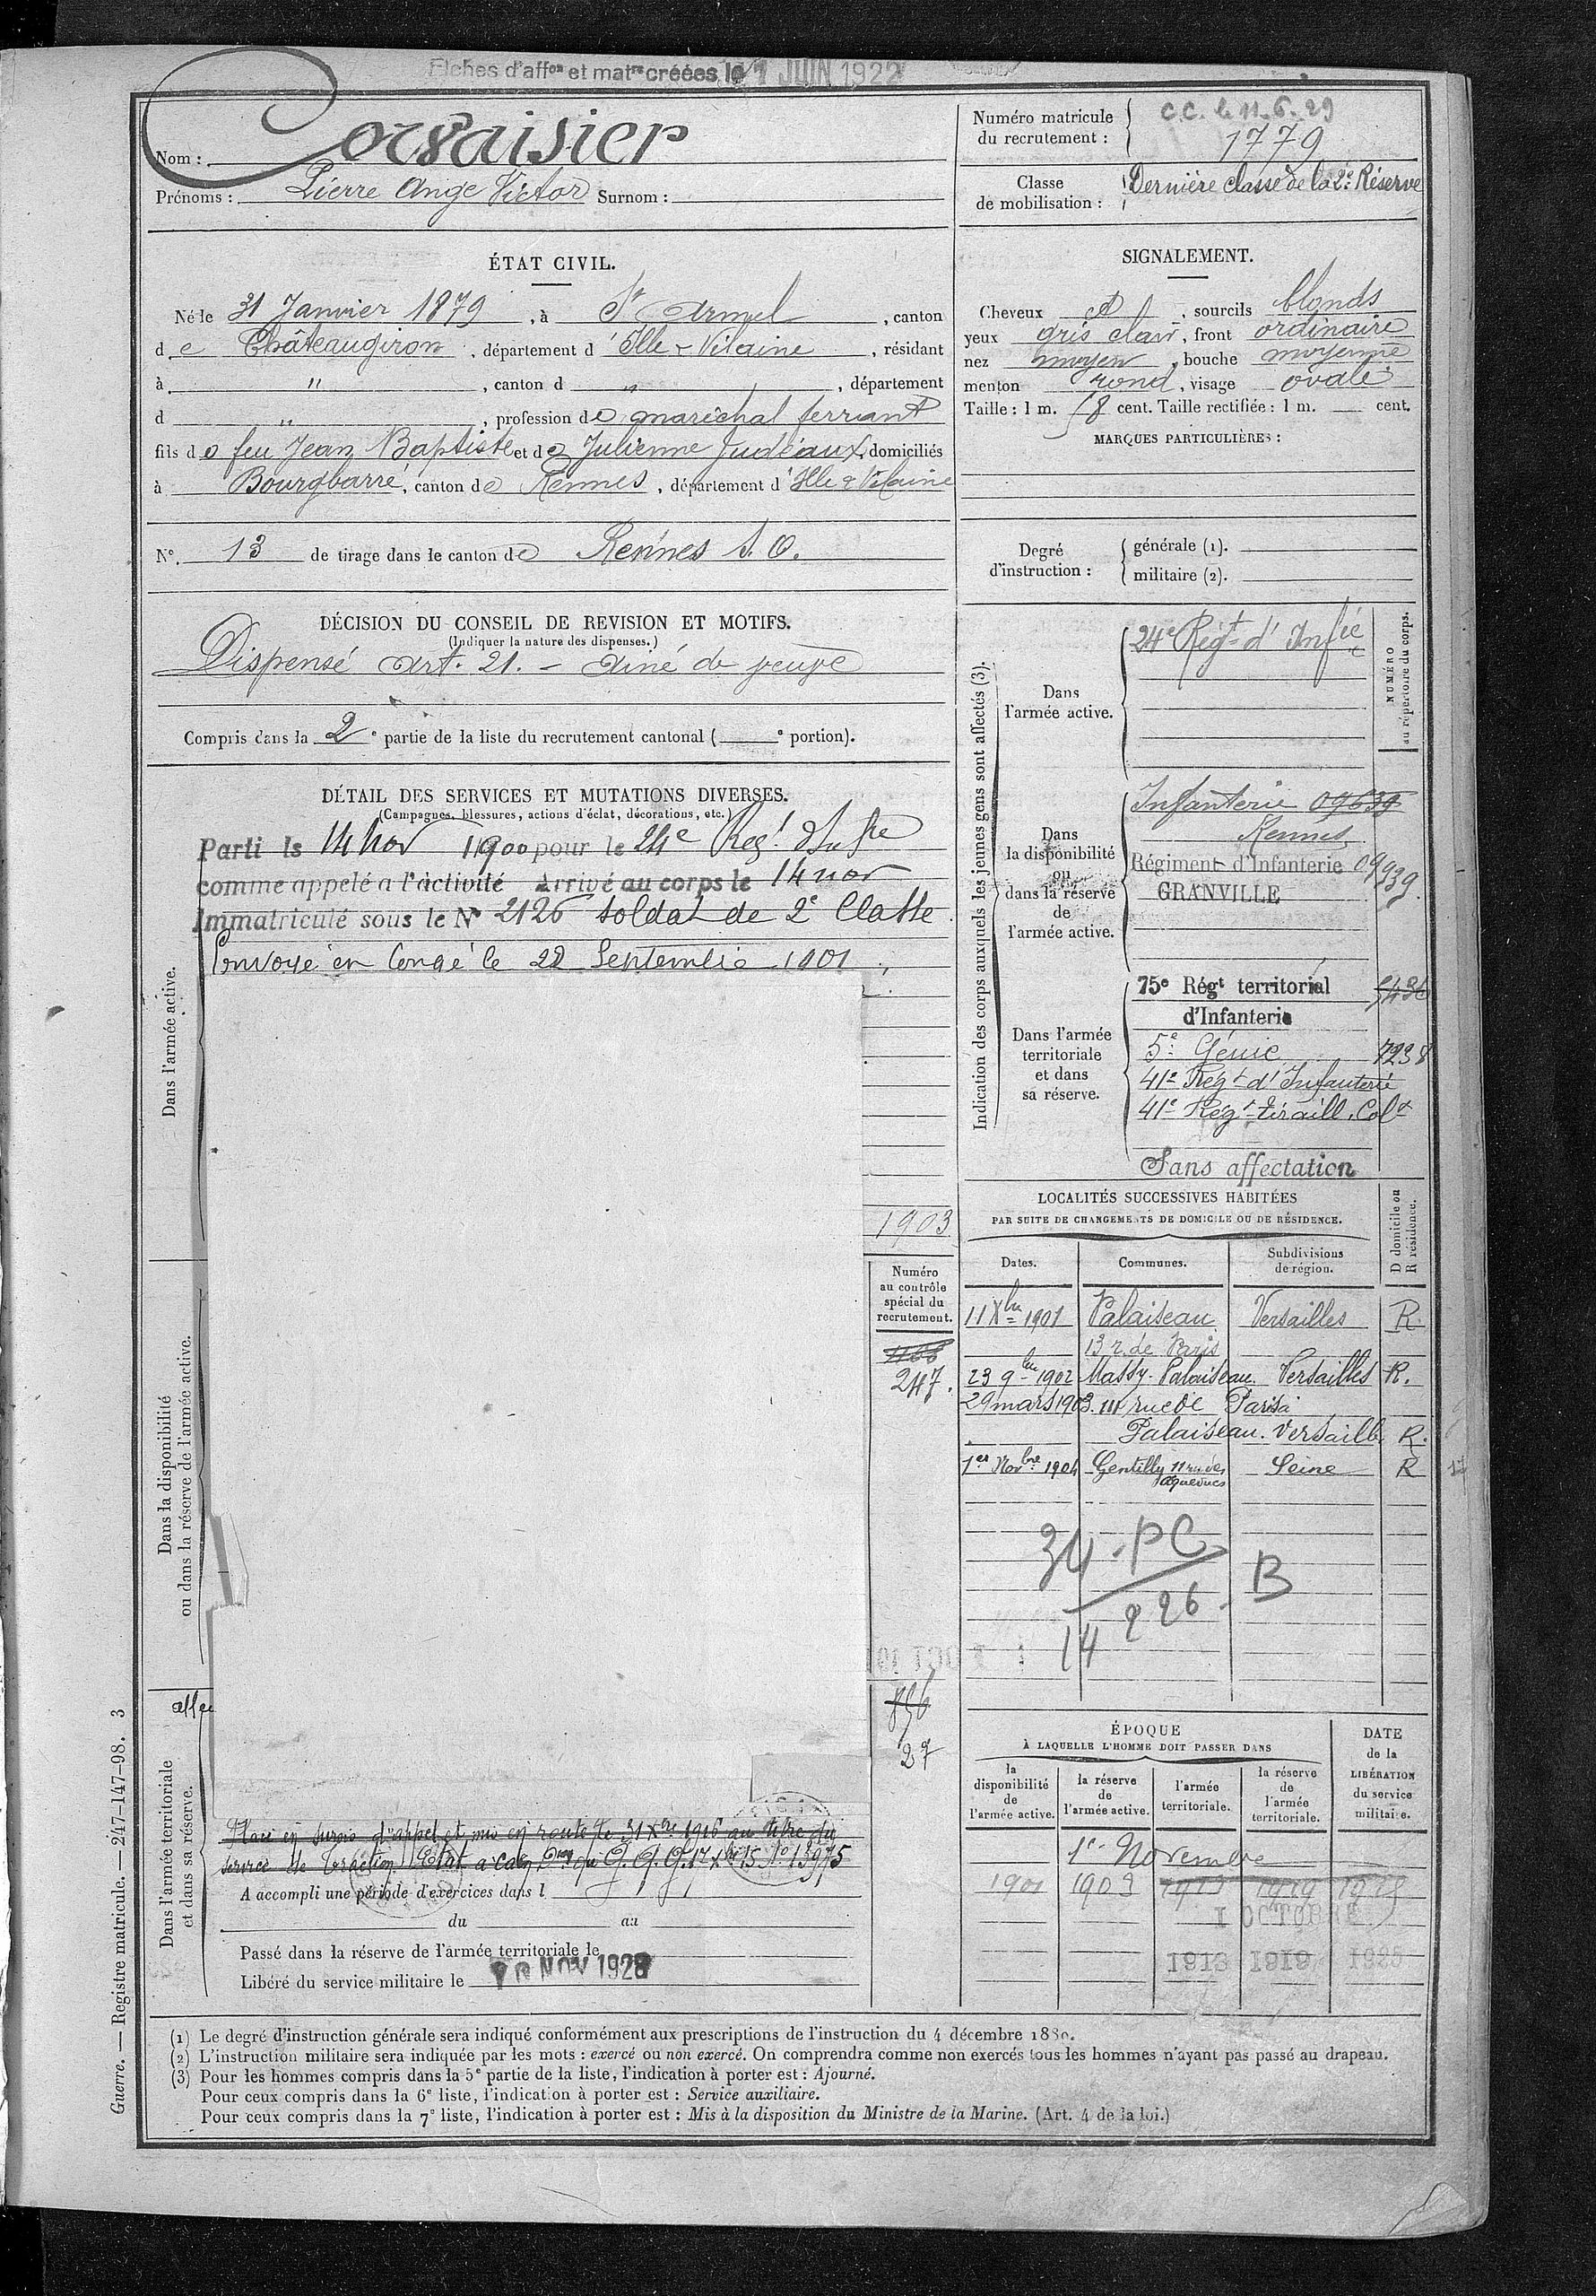 Fiches d'affon et matre créées le 1 JUIN 1922
Nom : Corvaisier
Prénoms : Pierre Ange Victor Surnom :
Numéro matricule du recrutement :
C.C. le 11.6.29
1779
Classe de mobilisation : Dernière classe de la 2e Réserve
ÉTAT CIVIL.
Né le 31 Janvier 1879, à St Armel, canton
de Châteaugiron, département d'Ille & Vilaine, résidant
à " , canton d " , département
d " , profession de maréchal ferrant
fils de feu Jean Baptiste et de Julienne Judéaux, domiciliés
à Bourgbarré, canton de Rennes, département d'Ille & Vilaine
No. 13 de tirage dans le canton de Rennes S. O.
SIGNALEMENT.
Cheveux et , sourcils blonds
yeux gris clair, front ordinaire
nez moyen, bouche moyenne
menton rond, visage ovale.
Taille : 1 m. 58 cent. Taille rectifiée : 1 m. — cent.
MARQUES PARTICULIÈRES :
Degré d'instruction :
générale (1).
militaire (2).
DÉCISION DU CONSEIL DE REVISION ET MOTIFS.
(Indiquer la nature des dispenses.)
Dispensé art. 21. - ainé de veuve
Compris dans la 2e partie de la liste du recrutement cantonal ( e portion).
DÉTAIL DES SERVICES ET MUTATIONS DIVERSES.
(Campagnes, blessures, actions d'éclat, décorations, etc.)
Parti le 14 nov 1900 pour le 24e Regt d'Infie
comme appelé a l'activité Arrivé au corps le 14 nov
Immatriculé sous le No 2126 soldat de 2e Classe
Envoyé en Congé le 22 Septembre 1901
1903
Dans l'armée active.
Dans la disponibilité
ou dans la réserve de l'armée active.
Dans l'armée territoriale
et dans sa réserve.
Numéro
au contrôle
spécial du
recrutement.
247.
27
Placé en sursis d'appel et mis en route le 31 Xre 1916 au titre du
service de traction Etat a Caen
A accompli une période d'exercices dans l
du au
Passé dans la réserve de l'armée territoriale le
Libéré du service militaire le 10 NOV 1928
Indication des corps auxquels les jeunes gens sont affectés (3).
NUMÉRO
au répertoire du corps.
Dans
l'armée active.
24e Régt d'Infie
Dans
la disponibilité
ou
dans la réserve
de
l'armée active.
Infanterie 09639
Rennes
Régiment d'Infanterie 09939.
GRANVILLE
Dans l'armée
territoriale
et dans
sa réserve.
75e Régt territorial 5436
d'Infanterie
5e Génie 7238
41e Régt d'Infanterie
41e Régt tiraill. Colx
Sans affectation
LOCALITÉS SUCCESSIVES HABITÉES
PAR SUITE DE CHANGEMENTS DE DOMICILE OU DE RÉSIDENCE.
Dates. Communes. Subdivisions de région. D domicile ou R résidence.
11 Xbre 1901 Palaiseau Versailles R.
13 r. de Paris
23 9bre 1902 Massy-Palaiseau Versailles R.
29 mars 1903. 111 rue de Paris à
Palaiseau. Versaill. R.
1er Novbre 1904 Gentilly 11 rue des Aqueducs Seine R
34 . PC
B
226
14
ÉPOQUE
À LAQUELLE L'HOMME DOIT PASSER DANS
la disponibilité de l'armée active.
la réserve de l'armée active.
l'armée territoriale.
la réserve de l'armée territoriale.
DATE de la LIBÉRATION du service militaire.
1er Novembre
1901 1903 1913 1919 1925
1 OCTOBRE
1913 1919 1925
Guerre. — Registre matricule. — 247-147-98. 3
(1) Le degré d'instruction générale sera indiqué conformément aux prescriptions de l'instruction du 4 décembre 1889.
(2) L'instruction militaire sera indiquée par les mots : exercé ou non exercé. On comprendra comme non exercés tous les hommes n'ayant pas passé au drapeau.
(3) Pour les hommes compris dans la 5e partie de la liste, l'indication à porter est : Ajourné.
Pour ceux compris dans la 6e liste, l'indication à porter est : Service auxiliaire.
Pour ceux compris dans la 7e liste, l'indication à porter est : Mis à la disposition du Ministre de la Marine. (Art. 4 de la loi.)